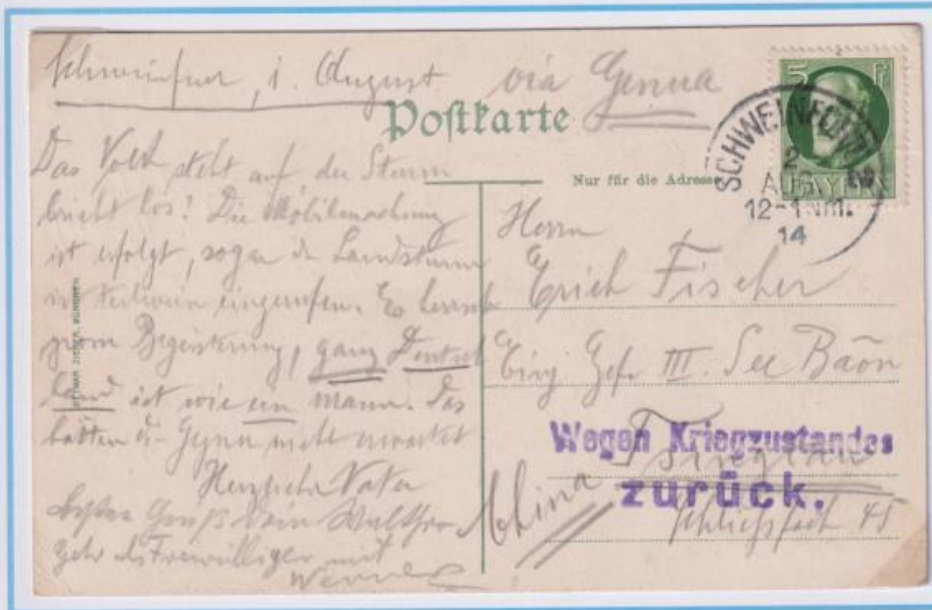 Schweinfurt, 1. August via Genua
Postkarte
Das Volk steht auf der Sturm
bricht los! Die Mobilmachung
ist erfolgt, sogar de Landsturm
ist teilweise eingerufen. Es herrscht
Begeisterung, ganz Deutsch
land ist wie ein Mann. Das
hätten die nicht erwartet
Herzliche Vater
besten Gruß Dein Walther
Gehe als Freiwilliger mit
Werner
Nur für die Adresse
SCHWEINFURT
2
AUG
12-1 Nm.
14
5 Pf
BAYERN
Herrn
Erich Fischer
Einj. Gefr. III. See Baon
Tsingtau
China
Schließfach 45
Wegen Kriegzustandes
zurück.